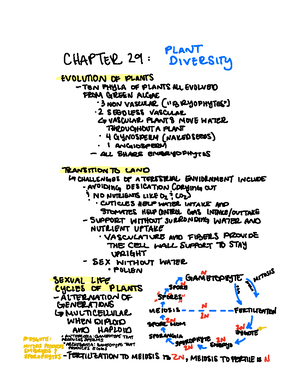 CHAPTER 29: PLANT DIVERSITY
EVOLUTION OF PLANTS
- TEN PHYLA OF PLANTS ALL EVOLVED
FROM GREEN ALGAE
• 3 NON VASCULAR ("BRYOPHYTES")
• 2 SEEDLESS VASCULAR
↳ VASCULAR PLANTS MOVE WATER
THROUGHOUT A PLANT
• 4 GYNOSPERM (NAKED SEEDS)
• 1 ANGIOSPERM
- ALL SHARE EMBRYOPHYTES
TRANSITION TO LAND
↳ CHALLENGES OF A TERESTRIAL ENVIRONMENT INCLUDE
• AVOIDING DESICATION (DRYING OUT)
! NO NUTRIENTS LIKE O2 & CO2)
• CUTICLES HELP WATER INTAKE AND
STOMATES HELP CONTROL GAS INTAKE/OUTTAKE
- SUPPORT WITHOUT SURROUNDING WATER AND
NUTRIENT UPTAKE
• VASCULATURE AND FIBERS PROVIDE
THE CELL WALL SUPPORT TO STAY
UPRIGHT
- SEX WITHOUT WATER
• POLLEN
SEXUAL LIFE
CYCLES OF PLANTS
- ALTERNATION OF
GENERATIONS
↳ MULTICELLULAR
WHEN DIPLOID
AND HAPLOID
GAMETOPHYTE
MITOSIS
SPORE
SPORES
N
N
MEIOSIS
N
FERTILIZATION
2N
SPORANGIA
2N
SPOROPHYTE
2N
EMBRYO
2N
ZYGOTE
- FERTILIZATION TO MEIOSIS IS 2N, MEIOSIS TO FERTILE IS N